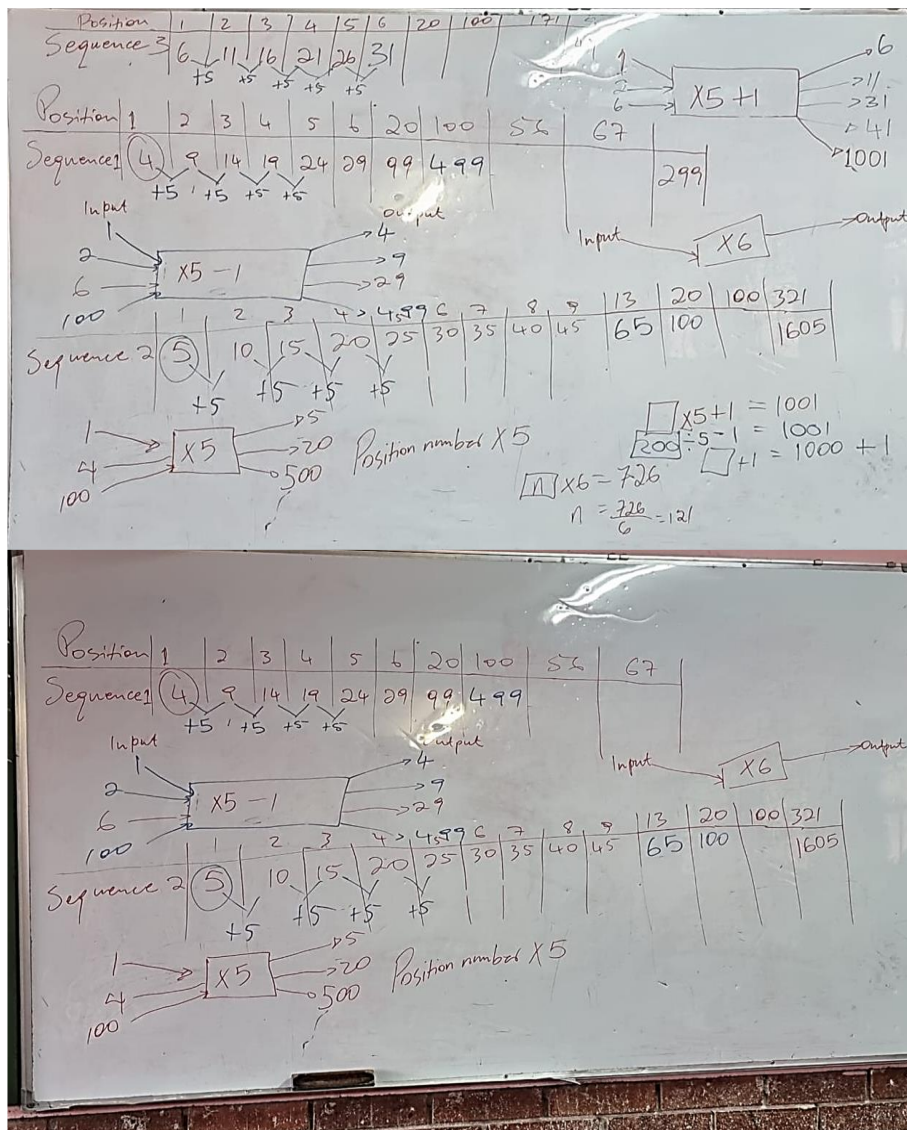 Position 1 2 3 4 5 6 20 100 171
Sequence 3 6 11 16 21 26 31
+5 +5 +5 +5 +5
1 2 6 x5+1 6 11 31 41 1001
Position 1 2 3 4 5 6 20 100 56 67
Sequence 1 4 9 14 19 24 29 99 499 299
+5 +5 +5 +5
Input Output
1 4
2 x5-1 9
6 29
100 499
Input x6 Output
1 2 3 4 5 6 7 8 9 13 20 100 321
Sequence 2 5 10 15 20 25 30 35 40 45 65 100 1605
+5 +5 +5 +5
1 5
4 x5 20
100 500
Position number x5
x5+1 = 1001
200 ÷5-1 = 1001
+1 = 1000 + 1
n x6 = 726
n = 726/6 = 121
Position 1 2 3 4 5 6 20 100 56 67
Sequence 1 4 9 14 19 24 29 99 499
+5 +5 +5 +5
Input Output
1 4
2 x5-1 9
6 29
100 499
Input x6 Output
1 2 3 4 5 6 7 8 9 13 20 100 321
Sequence 2 5 10 15 20 25 30 35 40 45 65 100 1605
+5 +5 +5 +5
1 5
4 x5 20
100 500
Position number x5